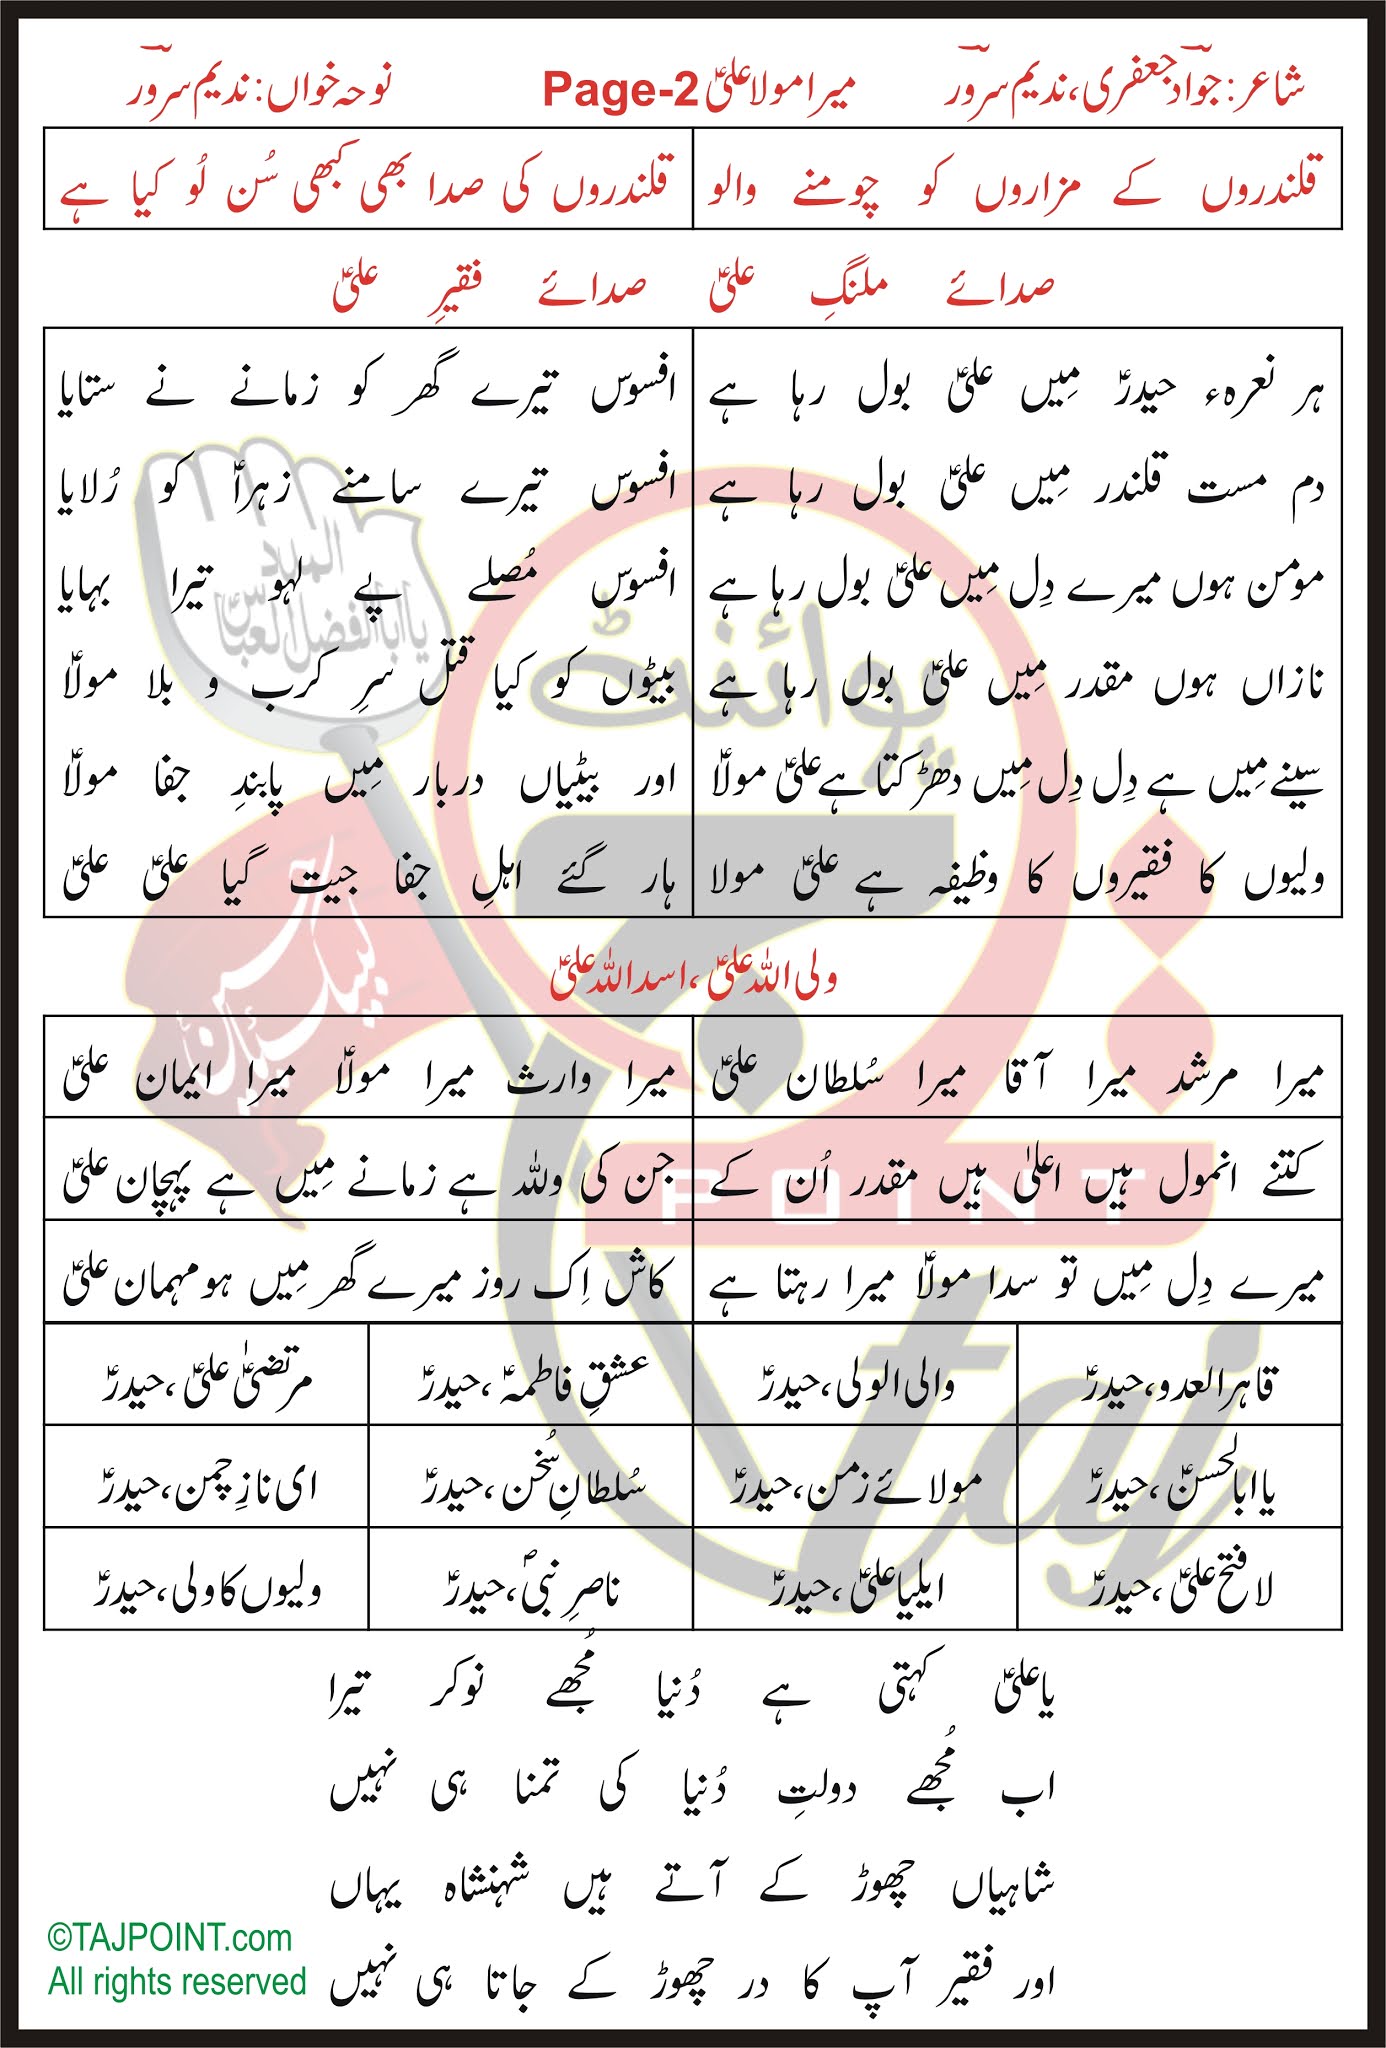 شاعر: جوّاد جعفری، ندیم سرور میرا مولا علیؑ Page-2 نوحہ خواں: ندیم سرور
قلندروں کے مزاروں کو چومنے والو قلندروں کی صدا بھی کبھی سُن لُو کیا ہے
صدائے ملنگِ علیؑ صدائے فقیرِ علیؑ
ہر نعرہء حیدرؑ مِیں علیؑ بول رہا ہے
دم مست قلندر مِیں علیؑ بول رہا ہے
مومن ہوں میرے دِل مِیں علیؑ بول رہا ہے
نازاں ہوں مقدر مِیں علیؑ بول رہا ہے
سینے مِیں ہے دِل دِل مِیں دھڑکتا ہے علیؑ مولاؑ
ولیوں کا فقیروں کا وظیفہ ہے علیؑ مولا
افسوس تیرے گھر کو زمانے نے ستایا
افسوس تیرے سامنے زہراؑ کو رُلایا
افسوس مُصلے پے لہو تیرا بہایا
بیٹوں کو کیا قتل سرِ کرب و بلا مولاؑ
اور بیٹیاں دربار مِیں پابندِ جفا مولاؑ
ہار گئے اہلِ جفا جیت گیا علیؑ علیؑ
ولی اللہ علیؑ، اسد اللہ علیؑ
میرا مرشد میرا آقا میرا سُلطان علیؑ میرا وارث میرا مولاؑ میرا ایمان علیؑ
کتنے انمول ہیں اعلیٰ ہیں مقدر اُن کے جن کی وللہ ہے زمانے مِیں ہے پہچان علیؑ
میرے دِل مِیں تو سدا مولاؑ میرا رہتا ہے کاش اِک روز میرے گھر مِیں ہو مہمان علیؑ
قاہر العدو، حیدرؑ والی الولی، حیدرؑ عشقِ فاطمہؑ، حیدرؑ مرتضیٰؑ علیؑ، حیدرؑ
یا ابالحسنؑ، حیدرؑ مولائے زمن، حیدرؑ سُلطانِ سُخن، حیدرؑ ای نازِ چمن، حیدرؑ
لافتح علیؑ، حیدرؑ ایلیا علیؑ، حیدرؑ ناصرِ نبیؐ، حیدرؑ ولیوں کا ولی، حیدرؑ
یا علیؑ کہتی ہے دُنیا مُجھے نوکر تیرا
اب مُجھے دولتِ دُنیا کی تمنا ہی نہیں
شاہیاں چھوڑ کے آتے ہیں شہنشاہ یہاں
اور فقیر آپ کا در چھوڑ کے جاتا ہی نہیں
©TAJPOINT.com
All rights reserved
المدد
یا ابا الفضل العباسؑ
لبیک یا حسینؑ
پوائنٹ
POINT
taj